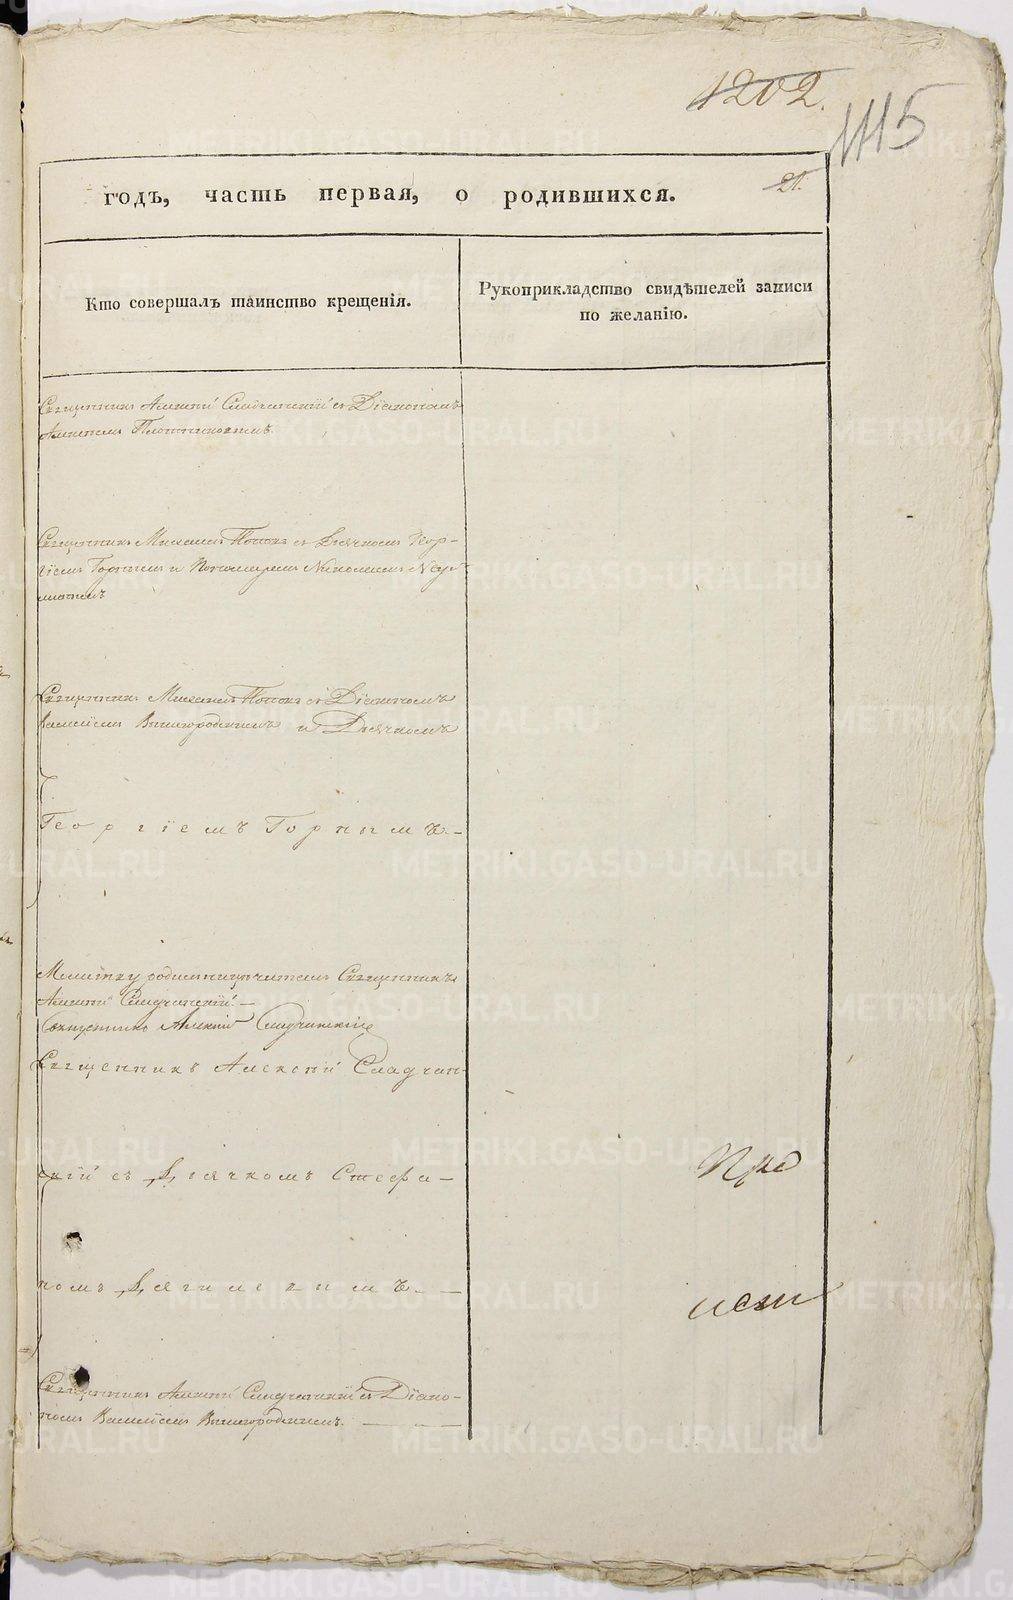 1202.
1115
годъ, часть первая, о родившихся.
21.
Кто совершалъ таинство крещенія.
Рукоприкладство свидѣтелей записи
по желанію.
Священникъ Алексій Сладчанскій съ Діакономъ
Плотниковымъ.
Священникъ Михаилъ Поповъ съ Дьячкомъ Геор-
гіемъ Горнымъ и Пономаремъ Николаемъ
Священникъ Михаилъ Поповъ съ Діакономъ
Василіемъ Вышгородскимъ и Дьячкомъ
Георгіемъ Горнымъ —
Молитву родильницѣ читалъ Священникъ
Алексій Сладчанскій. —
Священникъ Алексій Сладчан-
скій съ Дьячкомъ Стефа-
номъ Дягилевымъ. —
Священникъ Алексій Сладчанскій съ Діако-
номъ Василіемъ Вышгородскимъ. —
METRIKI.GASO-URAL.RU